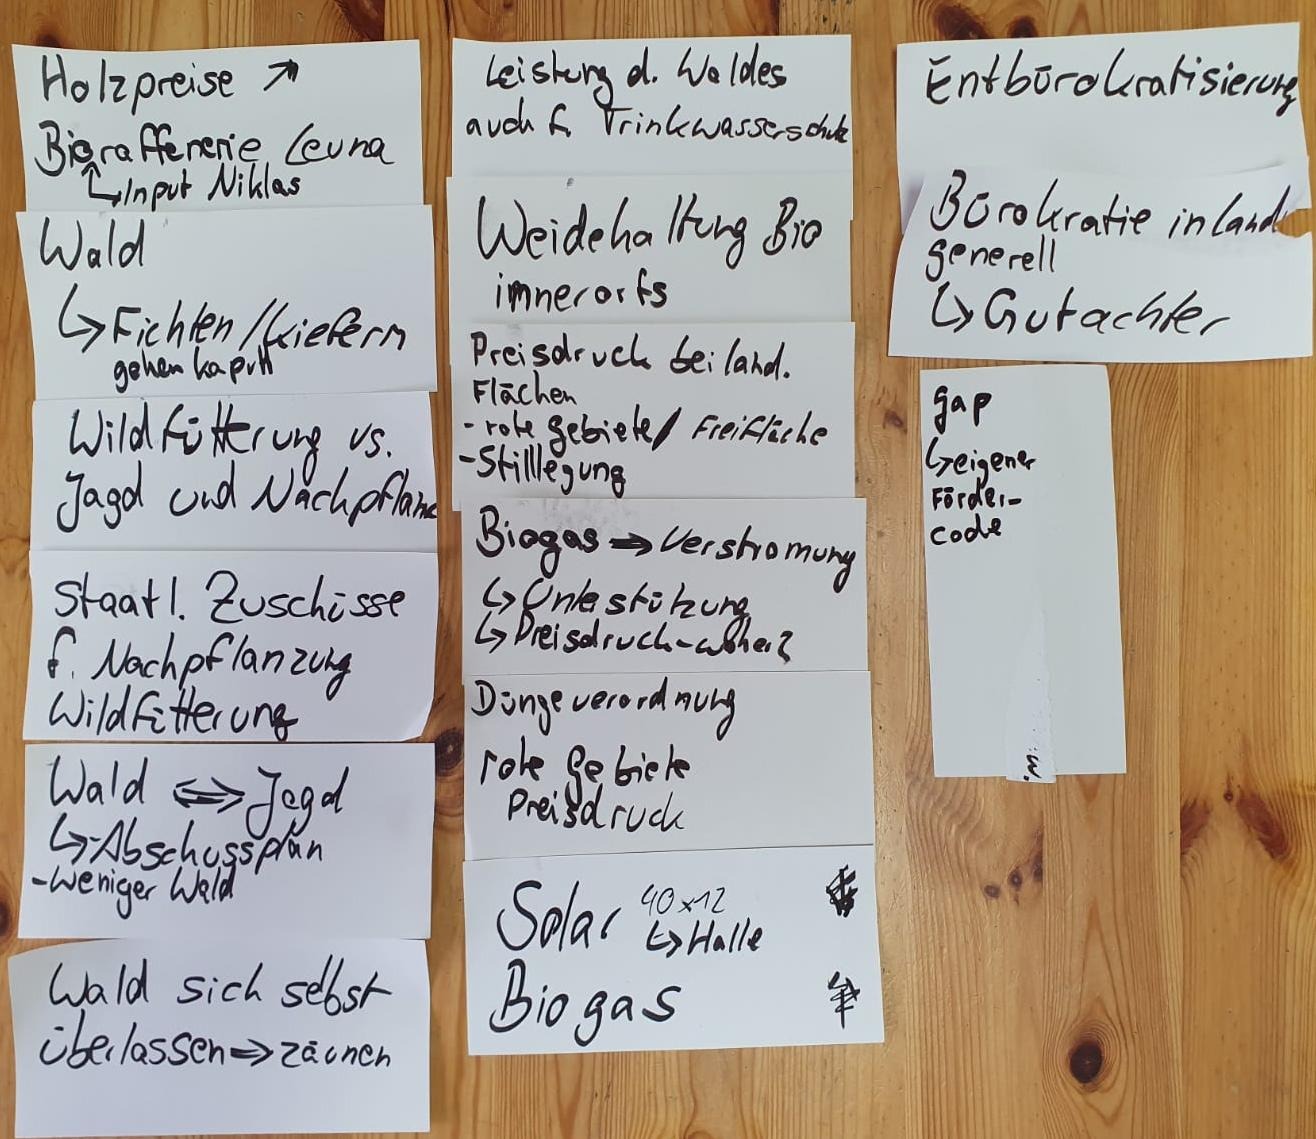 Holzpreise ↗
Bioraffenerie Leuna
↳ Input Niklas
Wald
↳ Fichten / Kiefern
gehen kaputt
Wildfütterung vs.
Jagd und Nachpflanz
Staatl. Zuschüsse
f. Nachpflanzung
Wildfütterung
Wald ⇔ Jagd
↳ - Abschussplan
- weniger Wald
Wald sich selbst
überlassen ⇒ zäunen
Leistung d. Waldes
auch f. Trinkwasserschutz
Weidehaltung Bio
innerorts
Preisdruck bei land.
Flächen
- rote Gebiete / Freifläche
- Stilllegung
Biogas ⇒ Verstromung
↳ Unterstützung
↳ Preisdruck - woher?
Düngeverordnung
rote Gebiete
Preisdruck
Solar 40 x 12
↳ Halle
Biogas
Entbürokratisierung
Bürokratie in land
generell
↳ Gutachter
gap
↳ eigener
Förder-
code